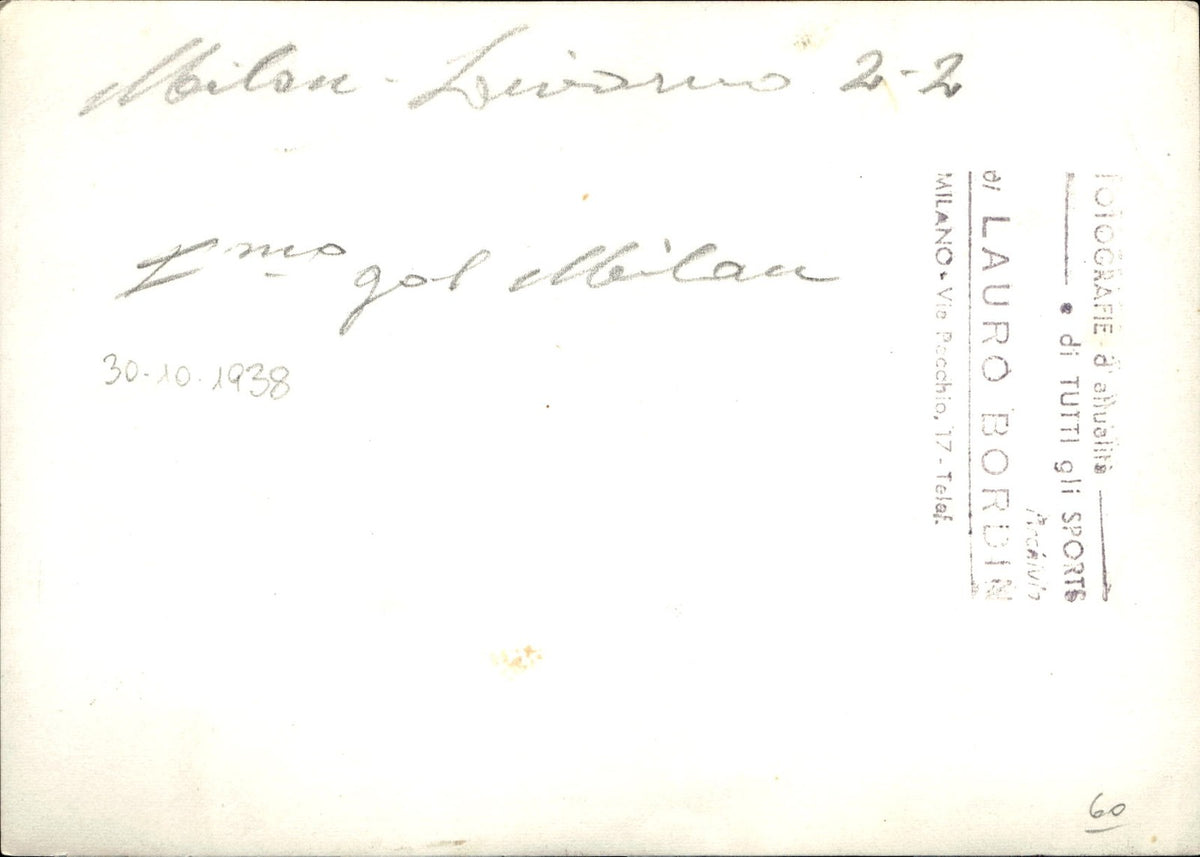 Milan - Livorno 2-2
Imo gol Milan
30-10-1938
FOTOGRAFIE d'attualità
e di TUTTI gli SPORTS
Archivio
di LAURO BORDIN
MILANO - Via Pacchio, 17 - Telef.
60